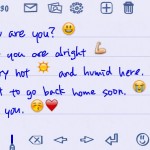 90
are you? 😊
you are alright 💪
ry hot ☀️ and humid here.
t to go back home soon. 😄
you. 😚❤️